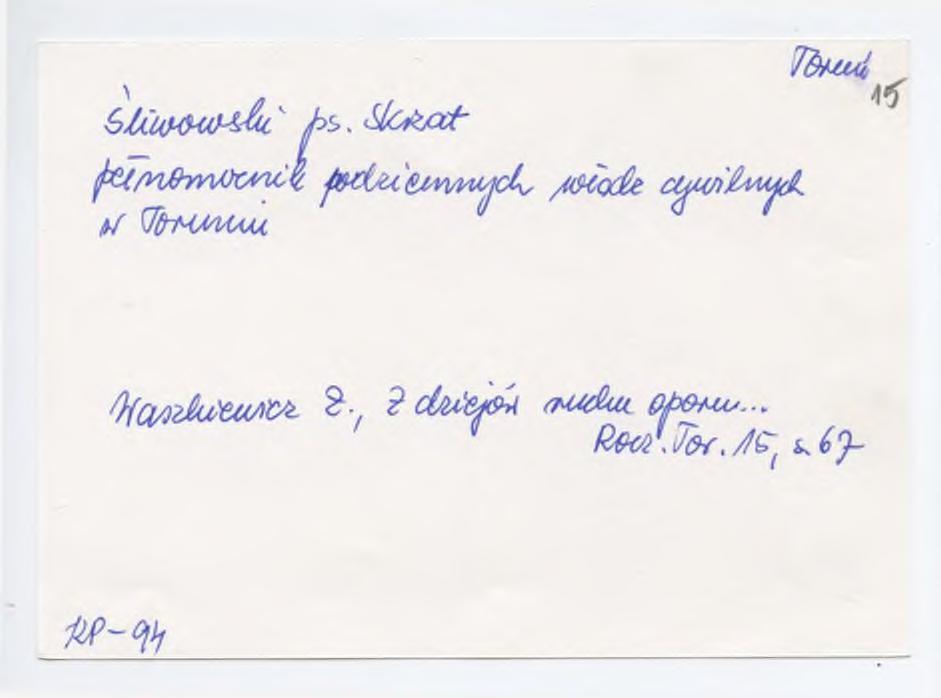 Toruń
15
Śliwowski ps. Skrzat
pełnomocnik podziemnych władz cywilnych
w Toruniu
Waszkiewicz Z., Z dziejów ruchu oporu...
Rocz. Tor. 15, s. 67
KP-94